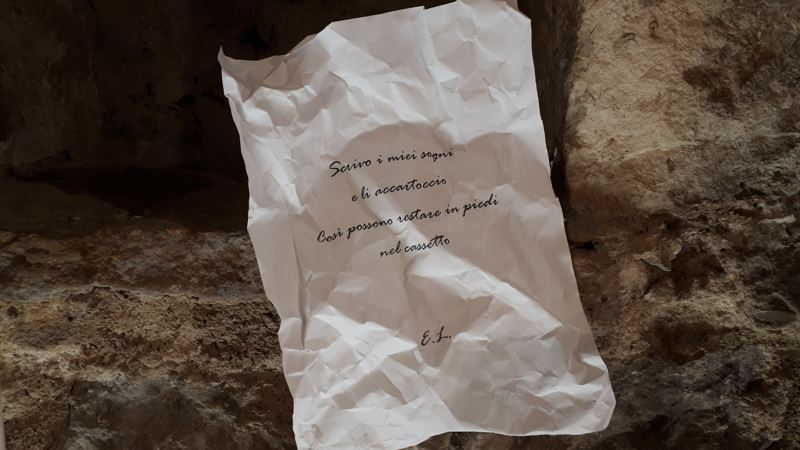 Scrivo i miei sogni
e li accartoccio
Così possono restare in piedi
nel cassetto
E.L.